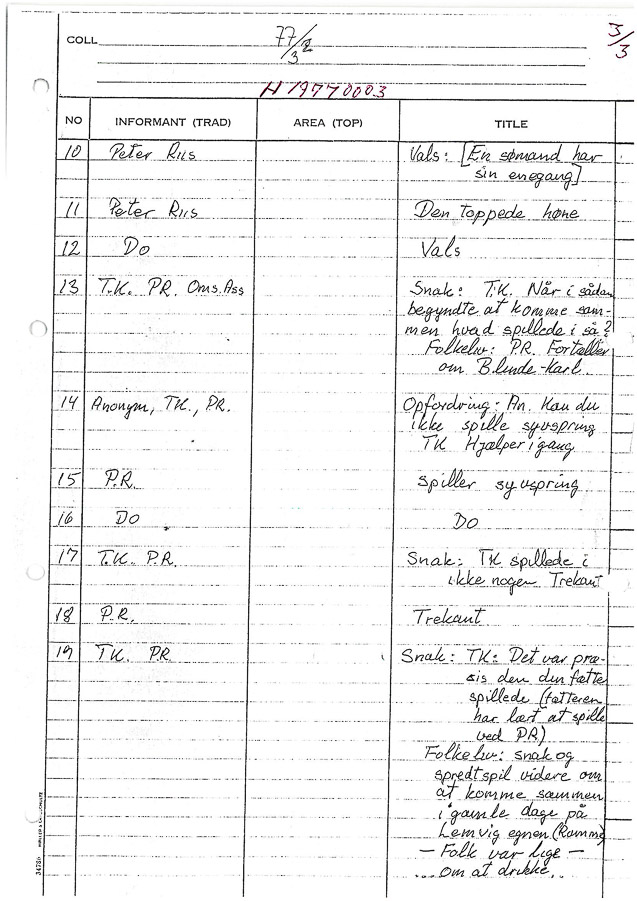 COLL 77/2/3 3/3
H19770003
NO INFORMANT (TRAD) AREA (TOP) TITLE
10 Peter Riis Vals: [En sømand har
sin enegang]
11 Peter Riis Den toppede høne
12 Do Vals
13 T.K. P.R. Oms.Ass Snak: T.K. Når i sådan
begyndte at komme sam-
men hvad spillede i så?
Folkeliv: P.R. Fortæller
om Blinde-Karl
14 Anonym, TK., PR. Opfordring: An. Kan du
ikke spille syvspring
TK Hjælper igang
15 P.R. spiller syvspring
16 Do Do
17 T.K. P.R. Snak: TK spillede i
ikke nogen Trekant
18 P.R. Trekant
19 TK. P.R. Snak: TK: Det var præ-
sis den din fætte
spillede (fætteren
har lært at spille
ved PR)
Folkeliv: snak og
spredt spil videre om
at komme sammen
i gamle dage på
Lemvig egnen (Ramme)
— Folk var lige —
om at drikke
34780